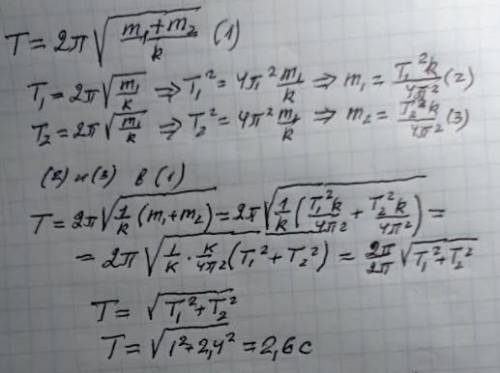 T = 2π√((m₁+m₂)/k) (1)
T₁ = 2π√(m₁/k) ⇒ T₁² = 4π² m₁/k ⇒ m₁ = T₁²k/4π² (2)
T₂ = 2π√(m₂/k) ⇒ T₂² = 4π² m₂/k ⇒ m₂ = T₂²k/4π² (3)
(2) и (3) в (1)
T = 2π√(1/k (m₁+m₂)) = 2π√(1/k (T₁²k/4π² + T₂²k/4π²)) =
= 2π√(1/k · k/4π² (T₁² + T₂²)) = 2π/2π √(T₁² + T₂²)
T = √(T₁² + T₂²)
T = √(1² + 2,4²) = 2,6 с